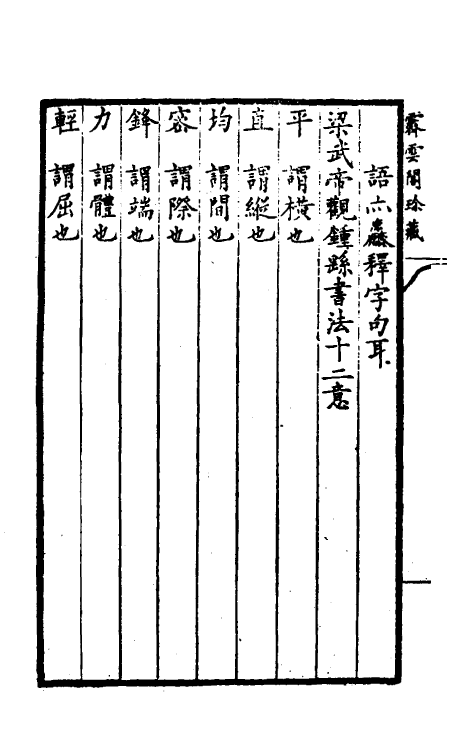 霏雲閣珍藏
語亦麤釋字句耳
梁武帝觀鍾繇書法十二意
平　謂橫也
直　謂縱也
均　謂間也
密　謂際也
鋒　謂端也
力　謂體也
輕　謂屈也